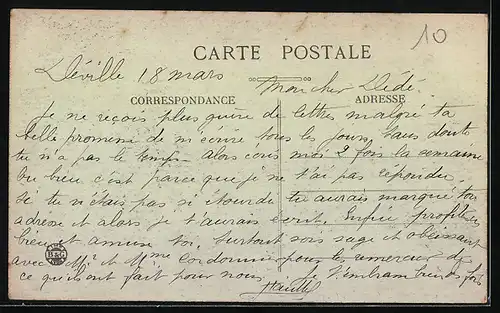 10
CARTE POSTALE
Déville 18 mars
Mon cher Dédé.
CORRESPONDANCE
ADRESSE
Je ne reçois plus guère de lettres malgré ta
belle promesse de m'écrire tous les jours, sans doute
tu n'a pas le temps - alors écris moi 2 fois la semaine
ou bien c'est parce que je ne t'ai pas répondu
Si tu n'étais pas si étourdi tu aurais marqué ton
adresse et alors je t'aurais écrit. Enfin profite
bien et amuse toi, surtout sois sage et obéissant
avec Mr et Mme Cordonnier pour les remercier de
ce qu'ils ont fait pour nous. Je t'embrasse bien fort